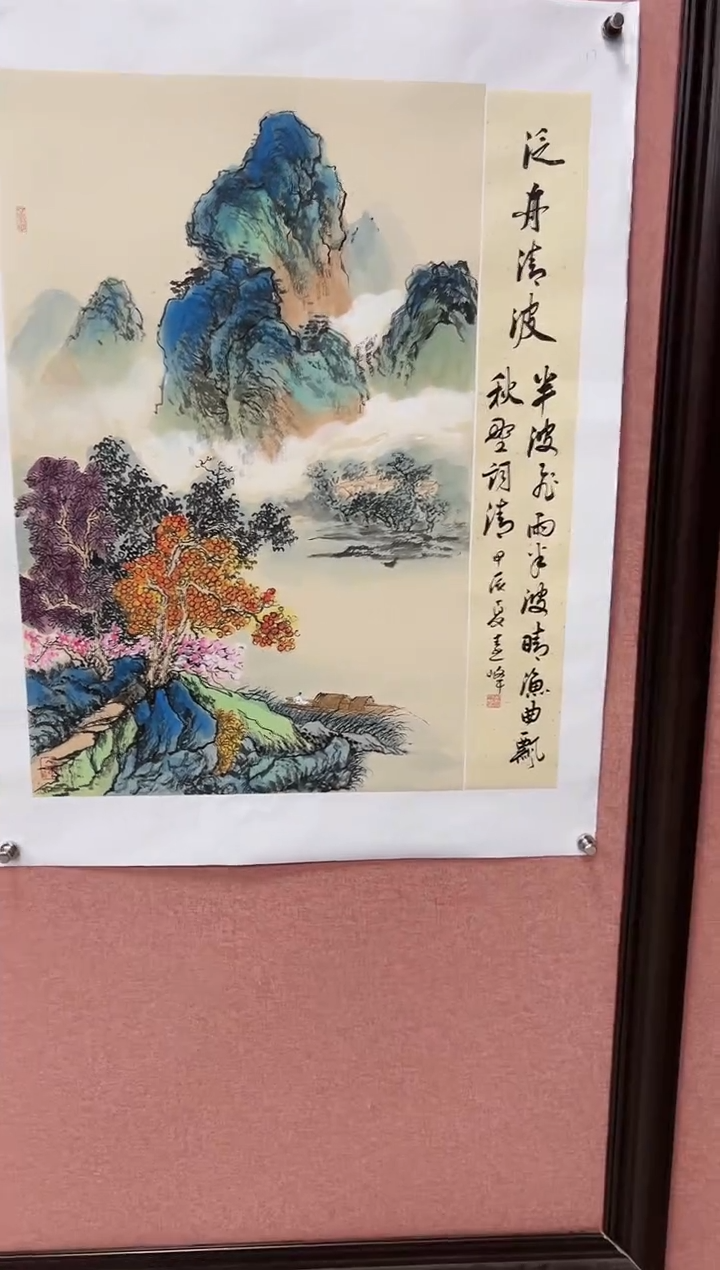 泛舟清波
半波飞雨半波晴渔曲飘
秋野词清
甲辰夏峰